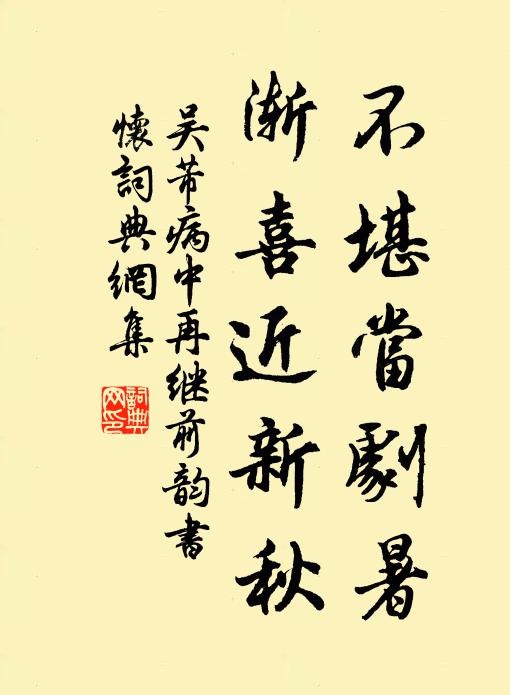 不堪當劇暑
渐喜近新秋
吴芾病中再继前韵書
懷詞典網集
詞典网印